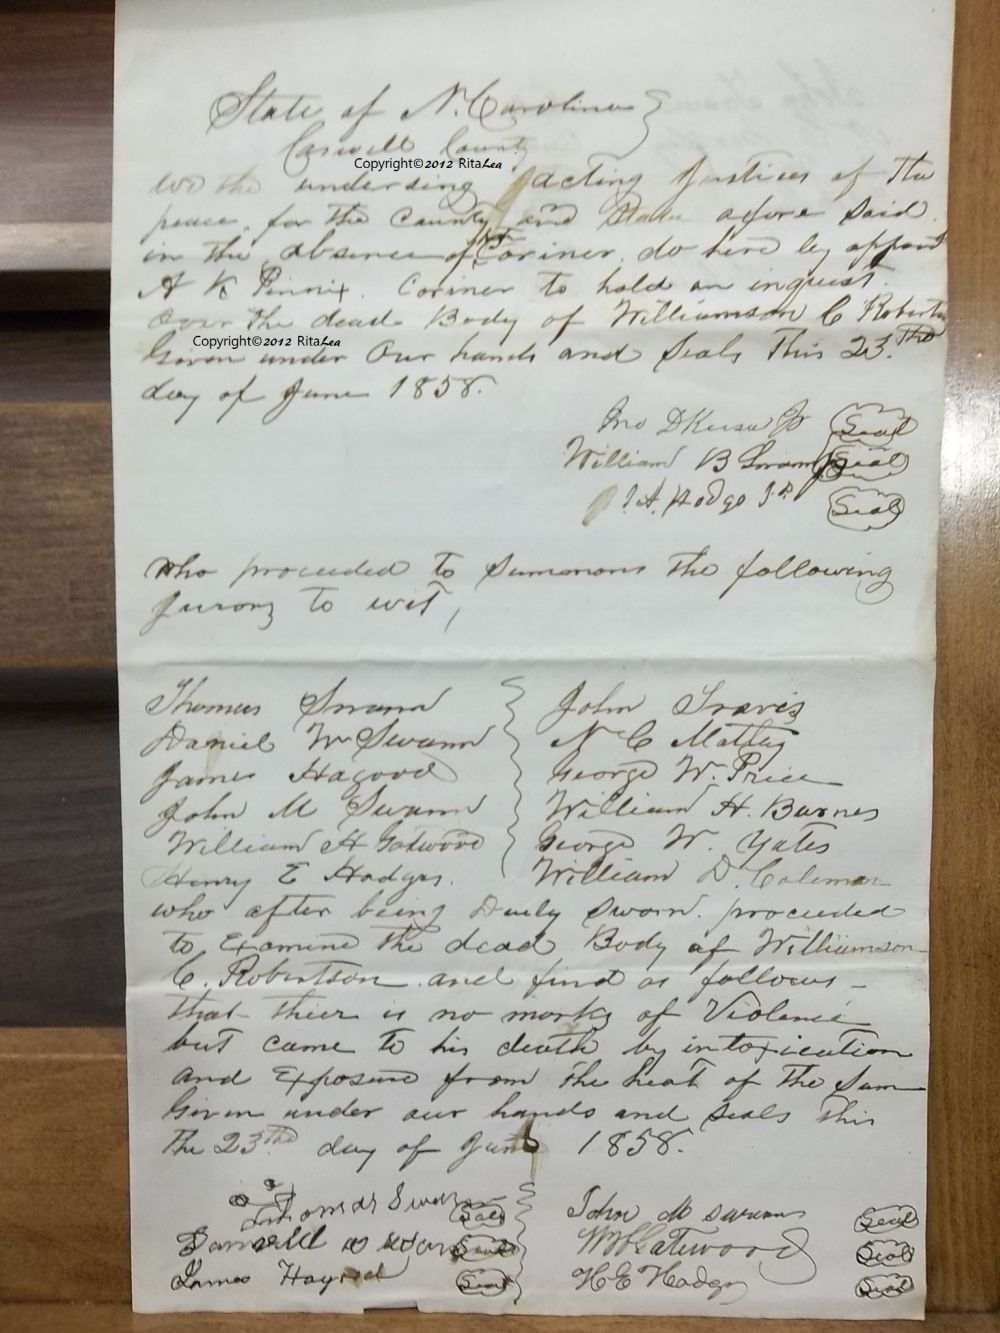 State of N. Carolina
Caswell County
Copyright©2012 RitaLea
We the undersing acting Justices of the
peace, for the County and State afore said
in the absence of the Coriner, do here by appoint
A K Pinnix. Coriner to hold an inquest.
Over the dead Body of Williamson C Roberts
Copyright©2012 RitaLea
Given under Our hands and Seals This 23.Thd
day of June 1858.
Jno D Jr Seal
William B Swann Jp Seal
J. A. Hodge J.P Seal
Who proceeded to Summons the following
Jurors to wit,
Thomas Swann John Travis
Daniel W Swann N C Matley
James Hagood George W. Price
John M Swann William H. Barnes
William H Gatwood George W. Yates
Henry E Hodges. William D. Coleman
who after being Duely Sworn. proceeded
to Examine the dead Body of Williamson
C. Robertson. and find as follows -
that their is no marks of Violence
but came to his death by intoxication
and Exposure from the heat of the Sun
Given under our hands and Seals This
The 23Thd day of June 1858.
Thomas Swann Seal John M Swann Seal
Seal Wm H Gatewood Seal
James Hagood Seal H E Hodges Seal